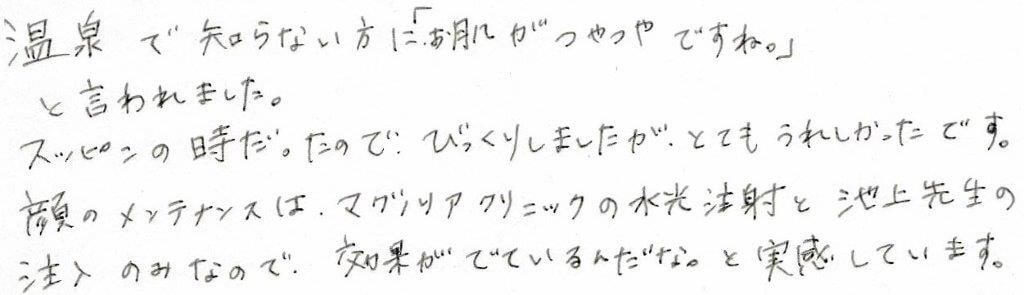 温泉で知らない方に「お肌がつやつやですね。」
と言われました。
スッピンの時だったので、びっくりしましたが、とてもうれしかったです。
顔のメンテナンスは、マグノリアクリニックの水光注射と池上先生の
注入のみなので、効果がでているんだな。と実感しています。